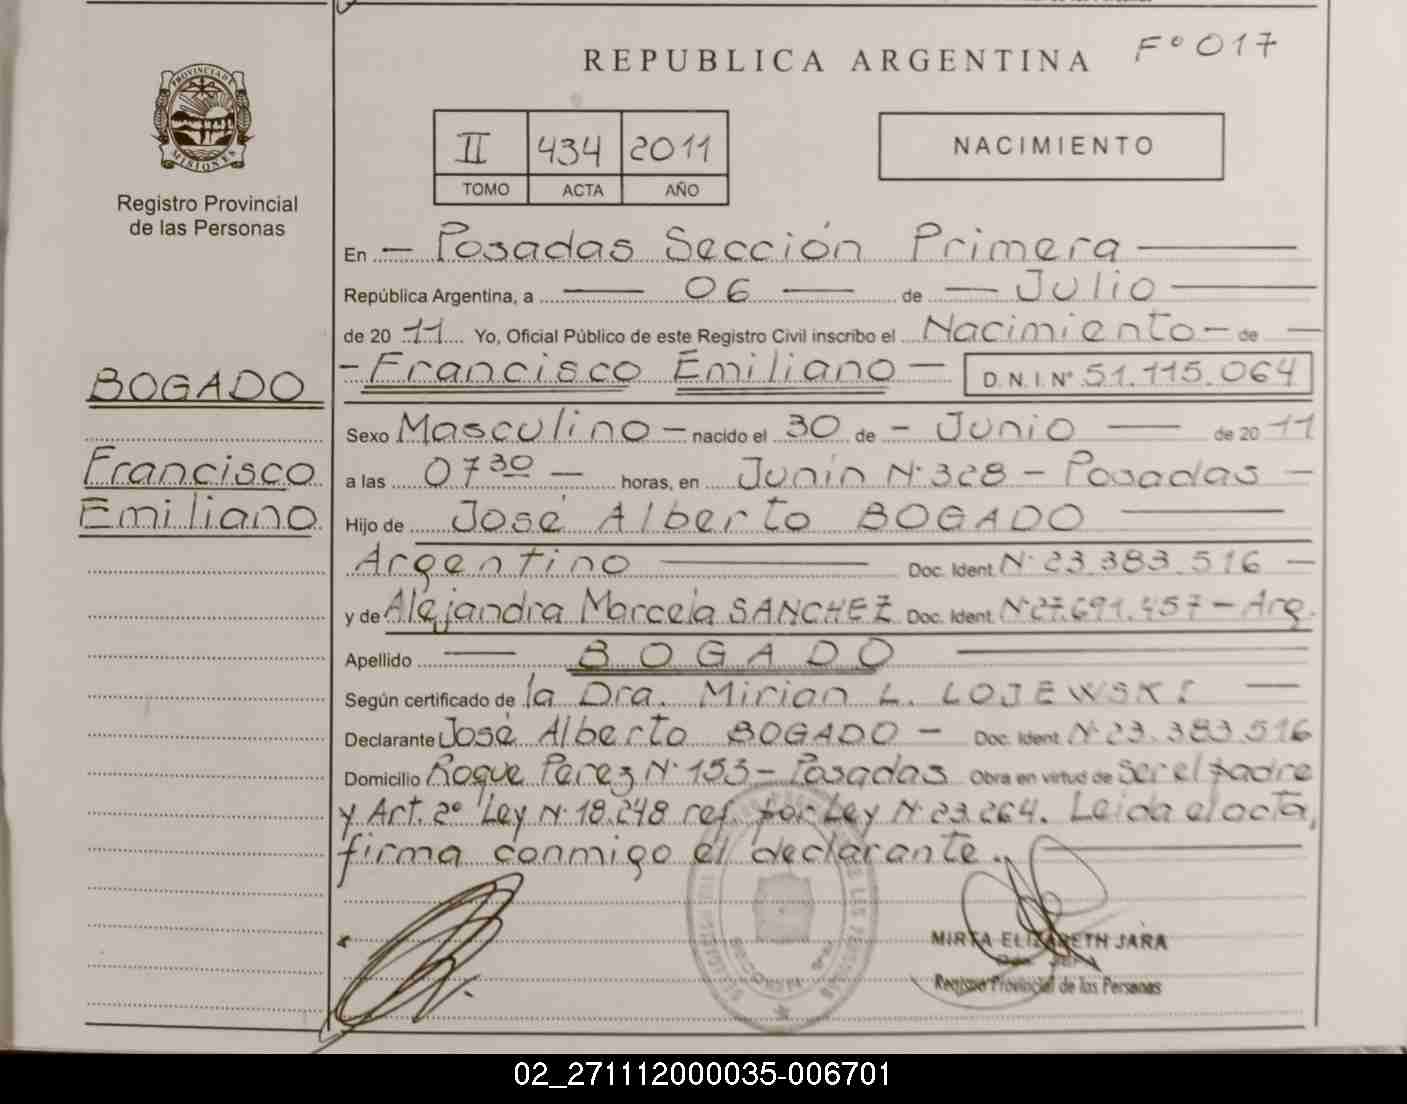 REPUBLICA ARGENTINA Fº 017
PROVINCIA DE MISIONES
Registro Provincial
de las Personas
II 434 2011
TOMO ACTA AÑO
NACIMIENTO
En — Posadas Sección Primera —
República Argentina, a — 06 — de — Julio —
de 20 11 Yo, Oficial Público de este Registro Civil inscribo el Nacimiento — de —
— Francisco Emiliano — D.N.I. Nº 51.115.064
BOGADO
Francisco
Emiliano
Sexo Masculino — nacido el 30 de — Junio — de 20 11
a las 07 30 — horas, en Junín Nº 328 — Posadas —
Hijo de José Alberto BOGADO —
Argentino — Doc. Ident. Nº 23.383.516 —
y de Alejandra Marcela SANCHEZ Doc. Ident. Nº 27.691.457 — Arg.
Apellido — BOGADO —
Según certificado de la Dra. Mirian L. LOJEWSKI —
Declarante José Alberto BOGADO — Doc. Ident. Nº 23.383.516
Domicilio Roque Perez Nº 153 — Posadas Obra en virtud de Ser el padre
y Art. 2º Ley Nº 18.248 ref. por Ley Nº 23.264. Leida el acta,
firma conmigo el declarante. —
MIRTA ELIZABETH JARA
Registro Provincial de las Personas
02_271112000035-006701